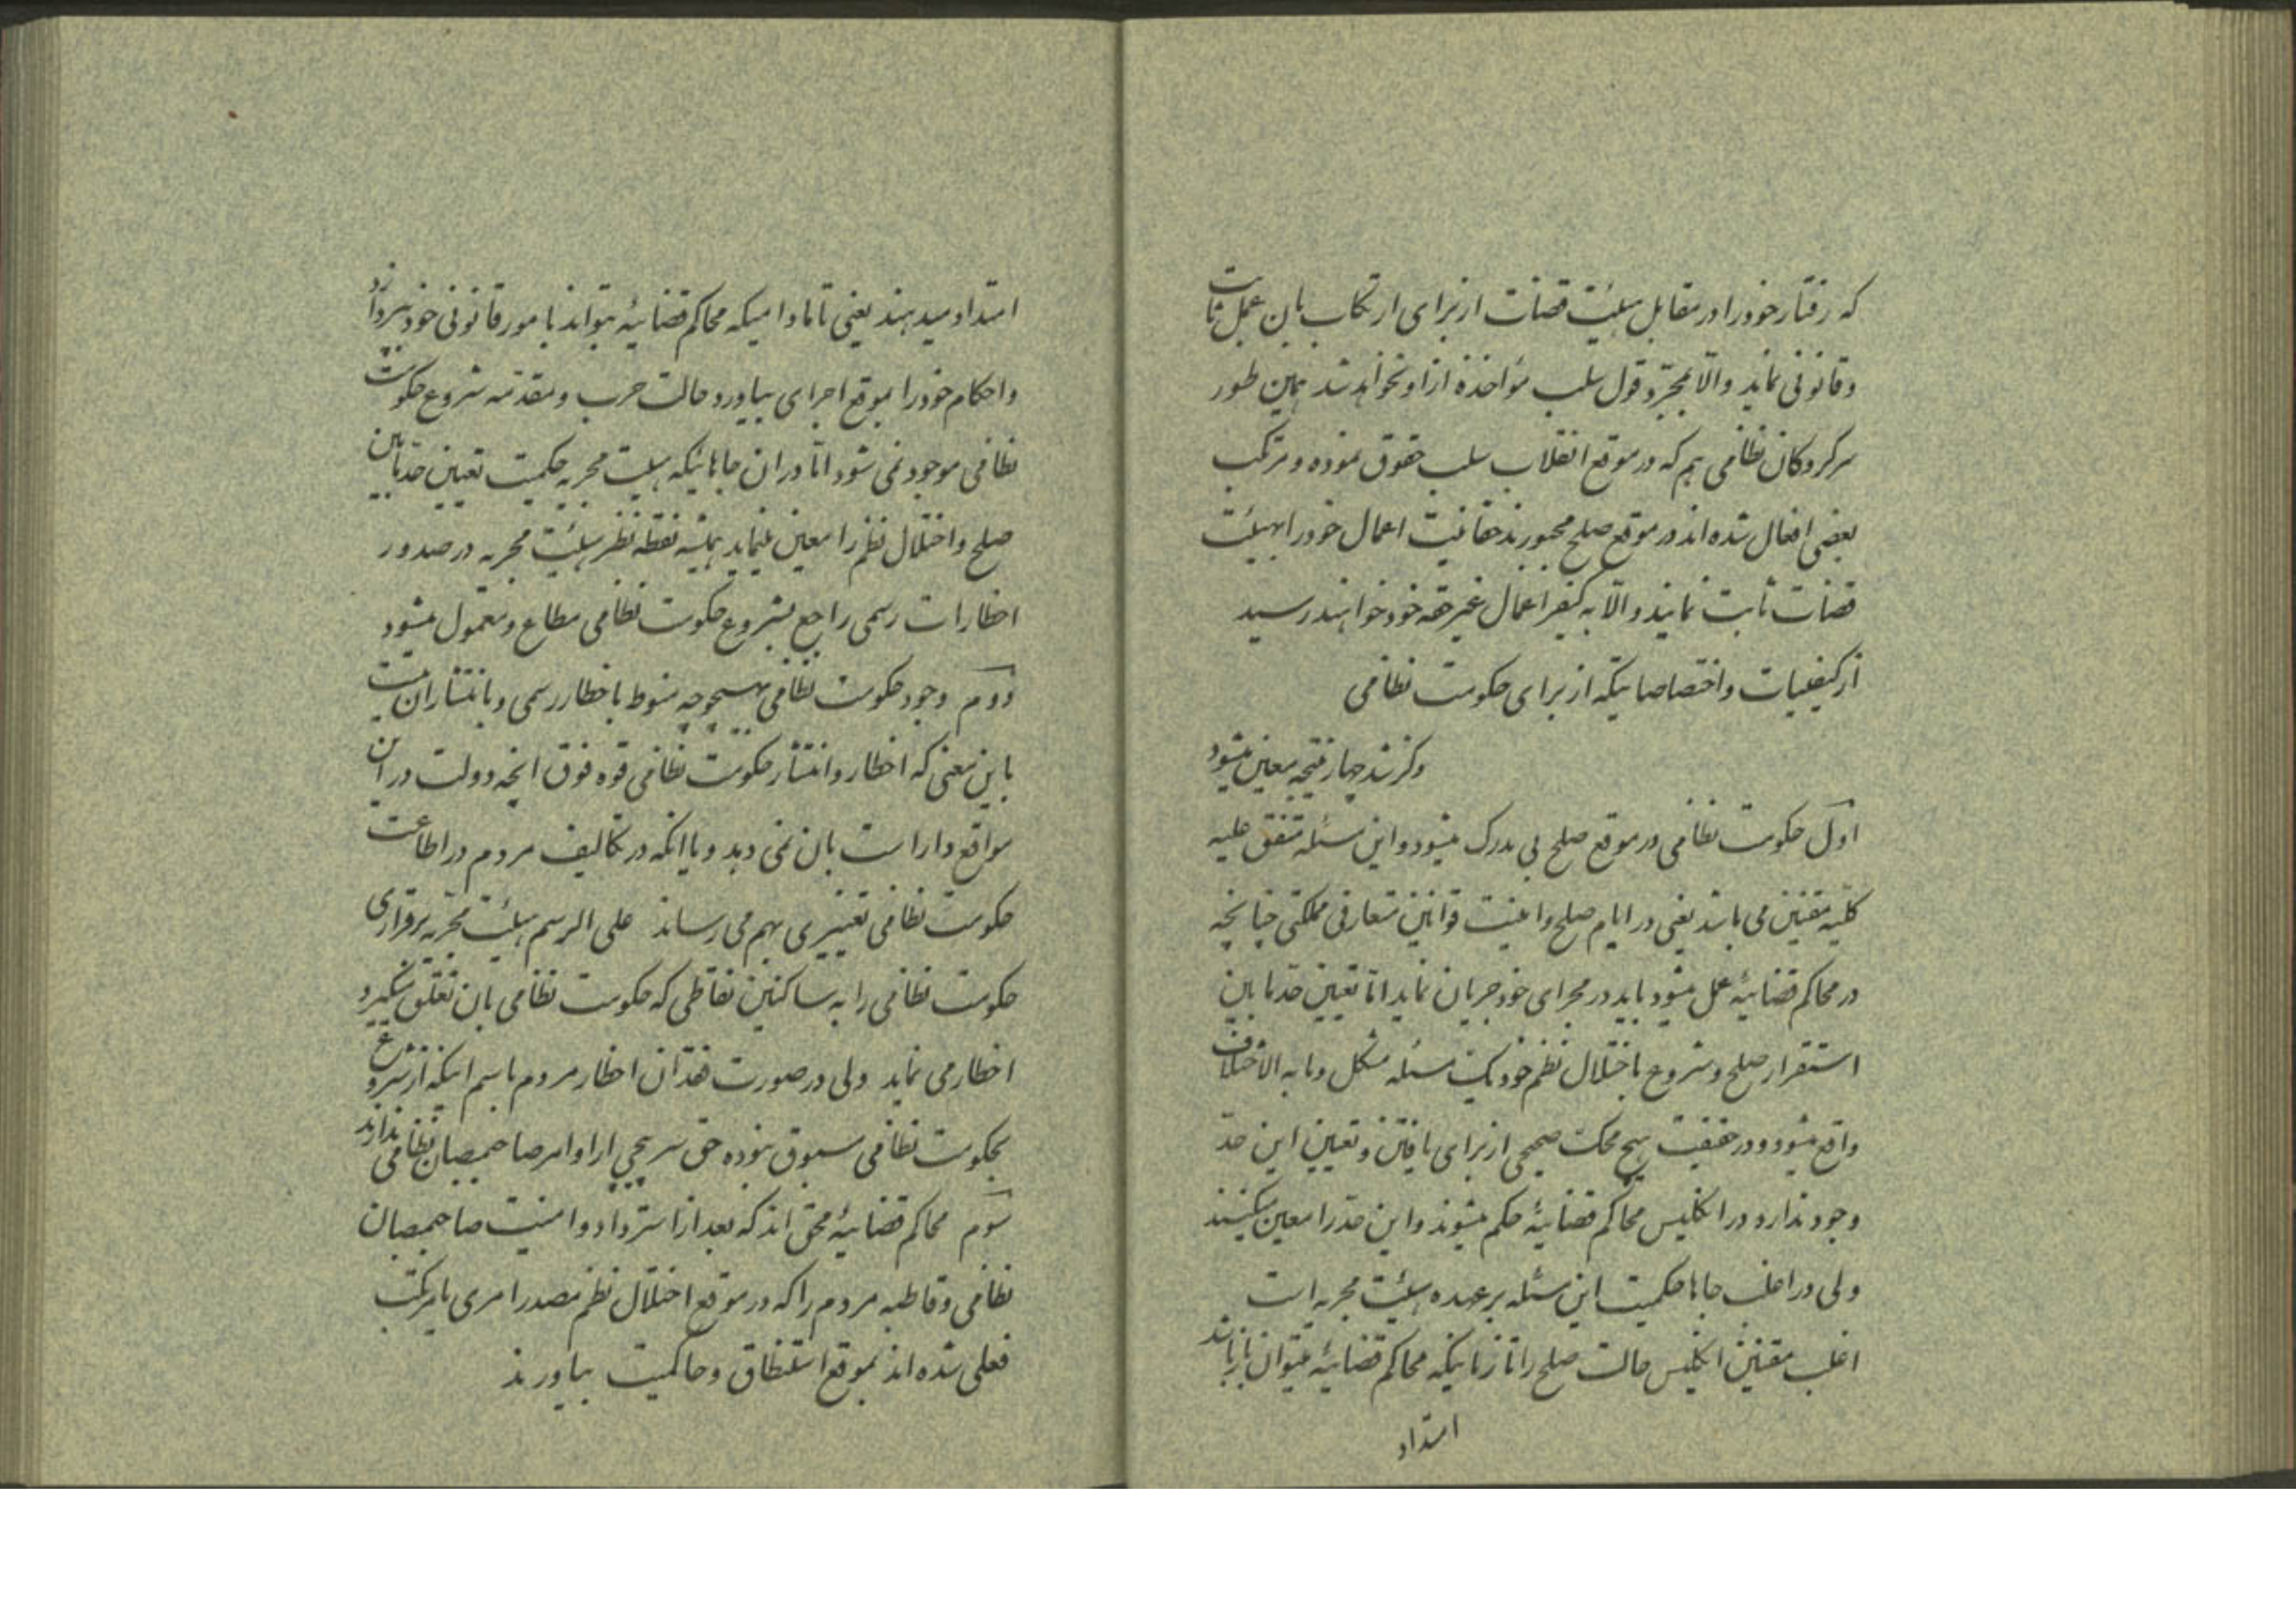 که رفتار خود را در مقابل هیئت قضات از برای ارتکاب بان عمل ثابت
و قانونی نماید والّا بمجرّد قول سلب مؤاخذه از او نخواهد شد همین طور
سرکردکان نظامی هم که در موقع انقلاب سلب حقوق نموده و مرتکب
بعضی افعال شده اند در موقع صلح مجبورند حقانیت اعمال خود را بهیئت
قضات ثابت نمایند والّا به کیفر اعمال غیر حقه خود خواهند رسید
از کیفیات و اختصاصاتیکه از برای حکومت نظامی
ذکر شد چهار نتیجه معین میشود
اوّل حکومت نظامی در موقع صلح بی مدرک میشود و این مسئله متفق علیه
کلیه مقننین می باشد یعنی در ایام صلح و امنیت قوانین متعارفی مملکتی چنانچه
در محاکم قضائیه عمل میشود باید در مجرای خود جریان نماید امّا تعیین حدّ مابین
استقرار صلح و شروع باختلال نظم خود یک مسئله مشکل و مابه الاختلاف
واقع میشود و در حقیقت هیچ محک صحیحی از برای یافتن و تعیین این حدّ
وجود ندارد در انکلیس محاکم قضائیه حکم میشوند و این حدّ را معین میکنند
ولی در اغلب جاها حکمیت این مسئله بر عهده هیئت مجریه است
اغلب مقننین انکلیس حالت صلح را تا زمانیکه محاکم قضائیه میتوان باز باشد
امتداد
امتداد میدهند یعنی تا مادامیکه محاکم قضائیه بتواند بامور قانونی خود بپردازد
و احکام خود را بموقع اجرای بیاورد حالت حرب و مقدمه شروع حکومت
نظامی موجود نمی شود امّا در ان جاهائیکه هیئت مجریه حکمیت تعیین حدّ مابین
صلح و اختلال نظم را معین مینماید همیشه نقطه نظر هیئت مجریه در صدور
اخطارات رسمی راجع بشروع حکومت نظامی مطاع و معمول میشود
دوم وجود حکومت نظامی بهیچوجه منوط باخطار رسمی و یا انتشار ان نیست
باین معنی که اخطار و انتشار حکومت نظامی قوه فوق انچه دولت در ان
مواقع داراست بان نمی دهد و یا انکه در تکالیف مردم در اطاعت
حکومت نظامی تغییری بهم می رساند علی الرسم هیئت مجریه برقراری
حکومت نظامی را به ساکنین نقاطی که حکومت نظامی بان تعلق میکیرد
اخطار می نماید ولی در صورت فقدان اخطار مردم باسم اینکه از شروع
بحکومت نظامی مسبوق نبوده حق سرپیچی از اوامر صاحمنصبان نظامی ندارند
سوم محاکم قضائیه محق اند که بعد از استرداد امنیت صاحمنصبان
نظامی و قاطبه مردم را که در موقع اختلال نظم مصدر امری یا مرتکب
فعلی شده اند بموقع استنطاق و حاکمیت بیاورند